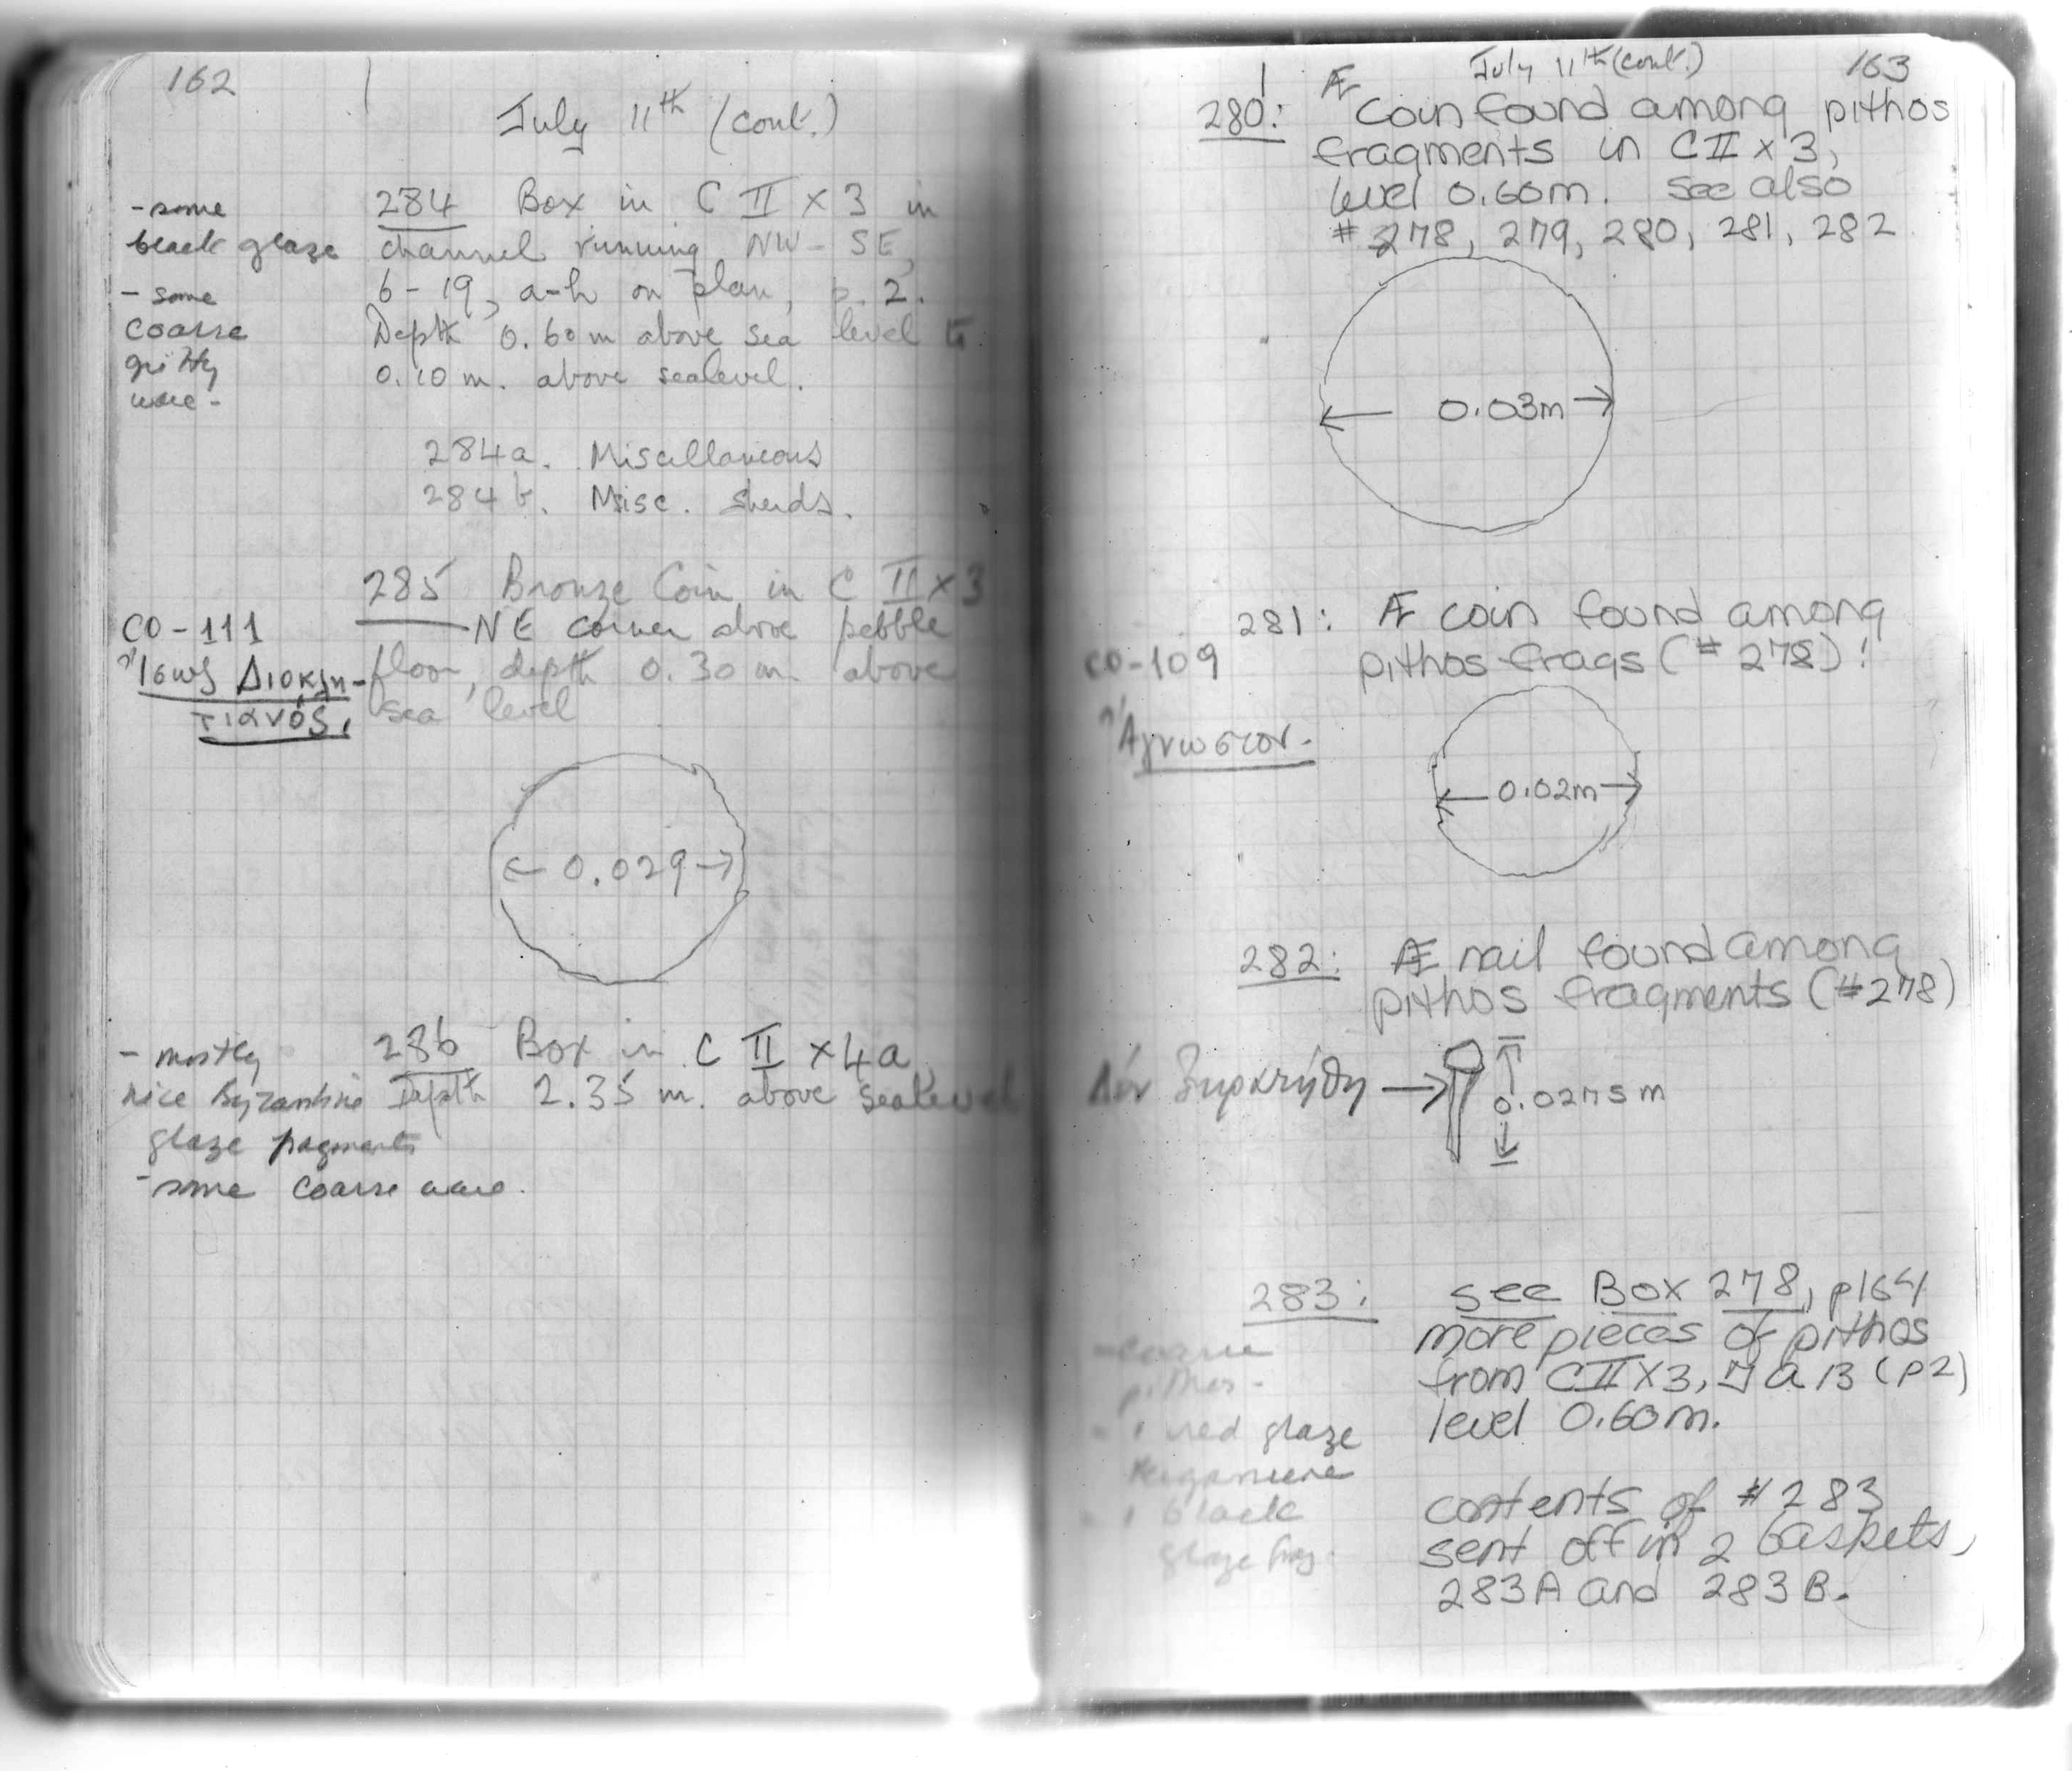 162
July 11th (cont.)
- some
black glaze
- some
coarse
gritty
ware -
284 Box in C II x 3 in
channel running NW - SE,
6-19, a-h on plan, p. 2.
Depth 0.60 m above sea level to
0.10 m. above sealevel.
284a. Miscellaneous
284b. Misc. sherds.
CO-111
Ἴσως Διοκλη-
τιανός.
285 Bronze Coin in C II x 3
NE corner above pebble
floor, depth 0.30 m above
sea level
← 0.029 →
- mostly
nice Byzantine
glaze fragments
- some coarse ware.
286 Box in C II x 4a
Depth 2.35 m. above sealevel
July 11th (cont.)
163
280: Æ coin found among pithos
fragments in C II x 3,
level 0.60m. see also
# 278, 279, 280, 281, 282
← 0.03m →
281: Æ coin found among
pithos frags (# 278)!
CO-109
Ἄγνωστον.
← 0.02m →
282: Æ nail found among
pithos fragments (#278)
Δέν →
0.0275 m
283: see Box 278, p164
more pieces of pithos
from C II X 3, a 13 (p2)
level 0.60m.
- coarse
pithos -
- 1 red glaze
Pergamene
- 1 black
glaze frag.
contents of # 283
sent off in 2 baskets,
283A and 283B.